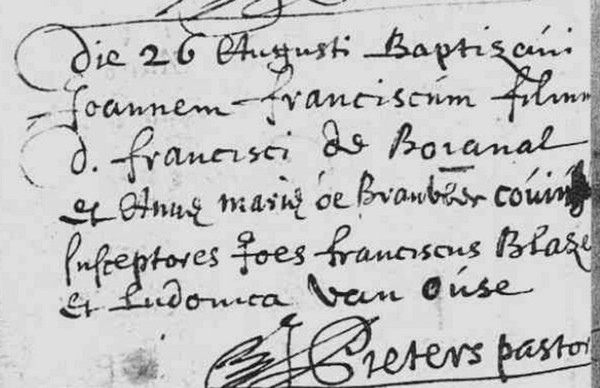 die 26 Augusti Baptizavi
Joannem franciscum filium
d. francisci de Boianal
et Annę marię de Brau coniu
susceptores Joes franciscus Blaze
et Ludovica van Ouse
Pieters pastor